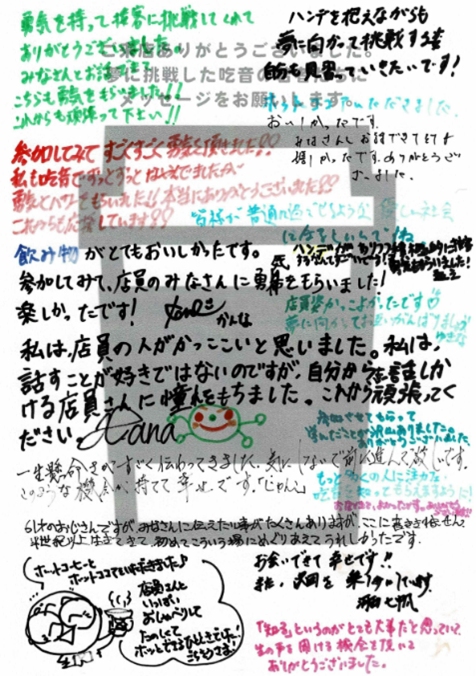 勇気を持って接客に挑戦してくれて
ありがとうございました。
みなさんとお話できて
こちらも勇気をもらいました!!
これからも頑張って下さい!!
ご来店ありがとうございました。
夢に挑戦した吃音の
メッセージをお願いします
ハンデを抱えながらも
夢に向かって挑戦する姿
を見習っていきたいです!
おいしかったです。
みなさんとお話できてとても
楽しかったです。ありがとうござ
いました。
参加してみてすごくすごく勇気を頂けました!!
私も吃音でずっとずっと
勇気とパワーをもらいました!!本当にありがとうございました!!
これからも応援しています!!
皆様が普通に過ごせるような優しい社会
飲み物がとてもおいしかったです。
参加してみて、店員のみなさんに勇気をもらいました!
楽しかったです!
かんな
店員姿かっこよかったです
夢に向かってお互いがんばりましょう
私は、店員の人がかっこいいと思いました。私は、
話すことが好きではないのですが、自分から話しか
ける店員さんに憧れをもちました。これから頑張ってく
ださい。Hana
参加させてもらって
学んだことが沢山ありました。
ありがとうございました。
一生懸命さがすごく伝わってきました。気にしないで前に進んで欲しいです。
このような機会が持てて幸せです。
もっと多くの人に活動を
吃音を知ってもらえますように!
61才のおじさんですが、みなさんに伝えたい事がたくさんありますが、ここに書ききれません。
半世紀以上生きてきて、初めてこういう場にめぐりあえてうれしかったです。
ホットコーヒーと
ホットココアをいただきました♪
店員さんと
いっぱい
おしゃべりして
たのしくて
ホッとできるひとときでした!
ごちそうさま!
お会いできて幸せです!!
「知る」というのがとても大事だと思っていて、
生の声を聞ける機会を頂いて
ありがとうございました。